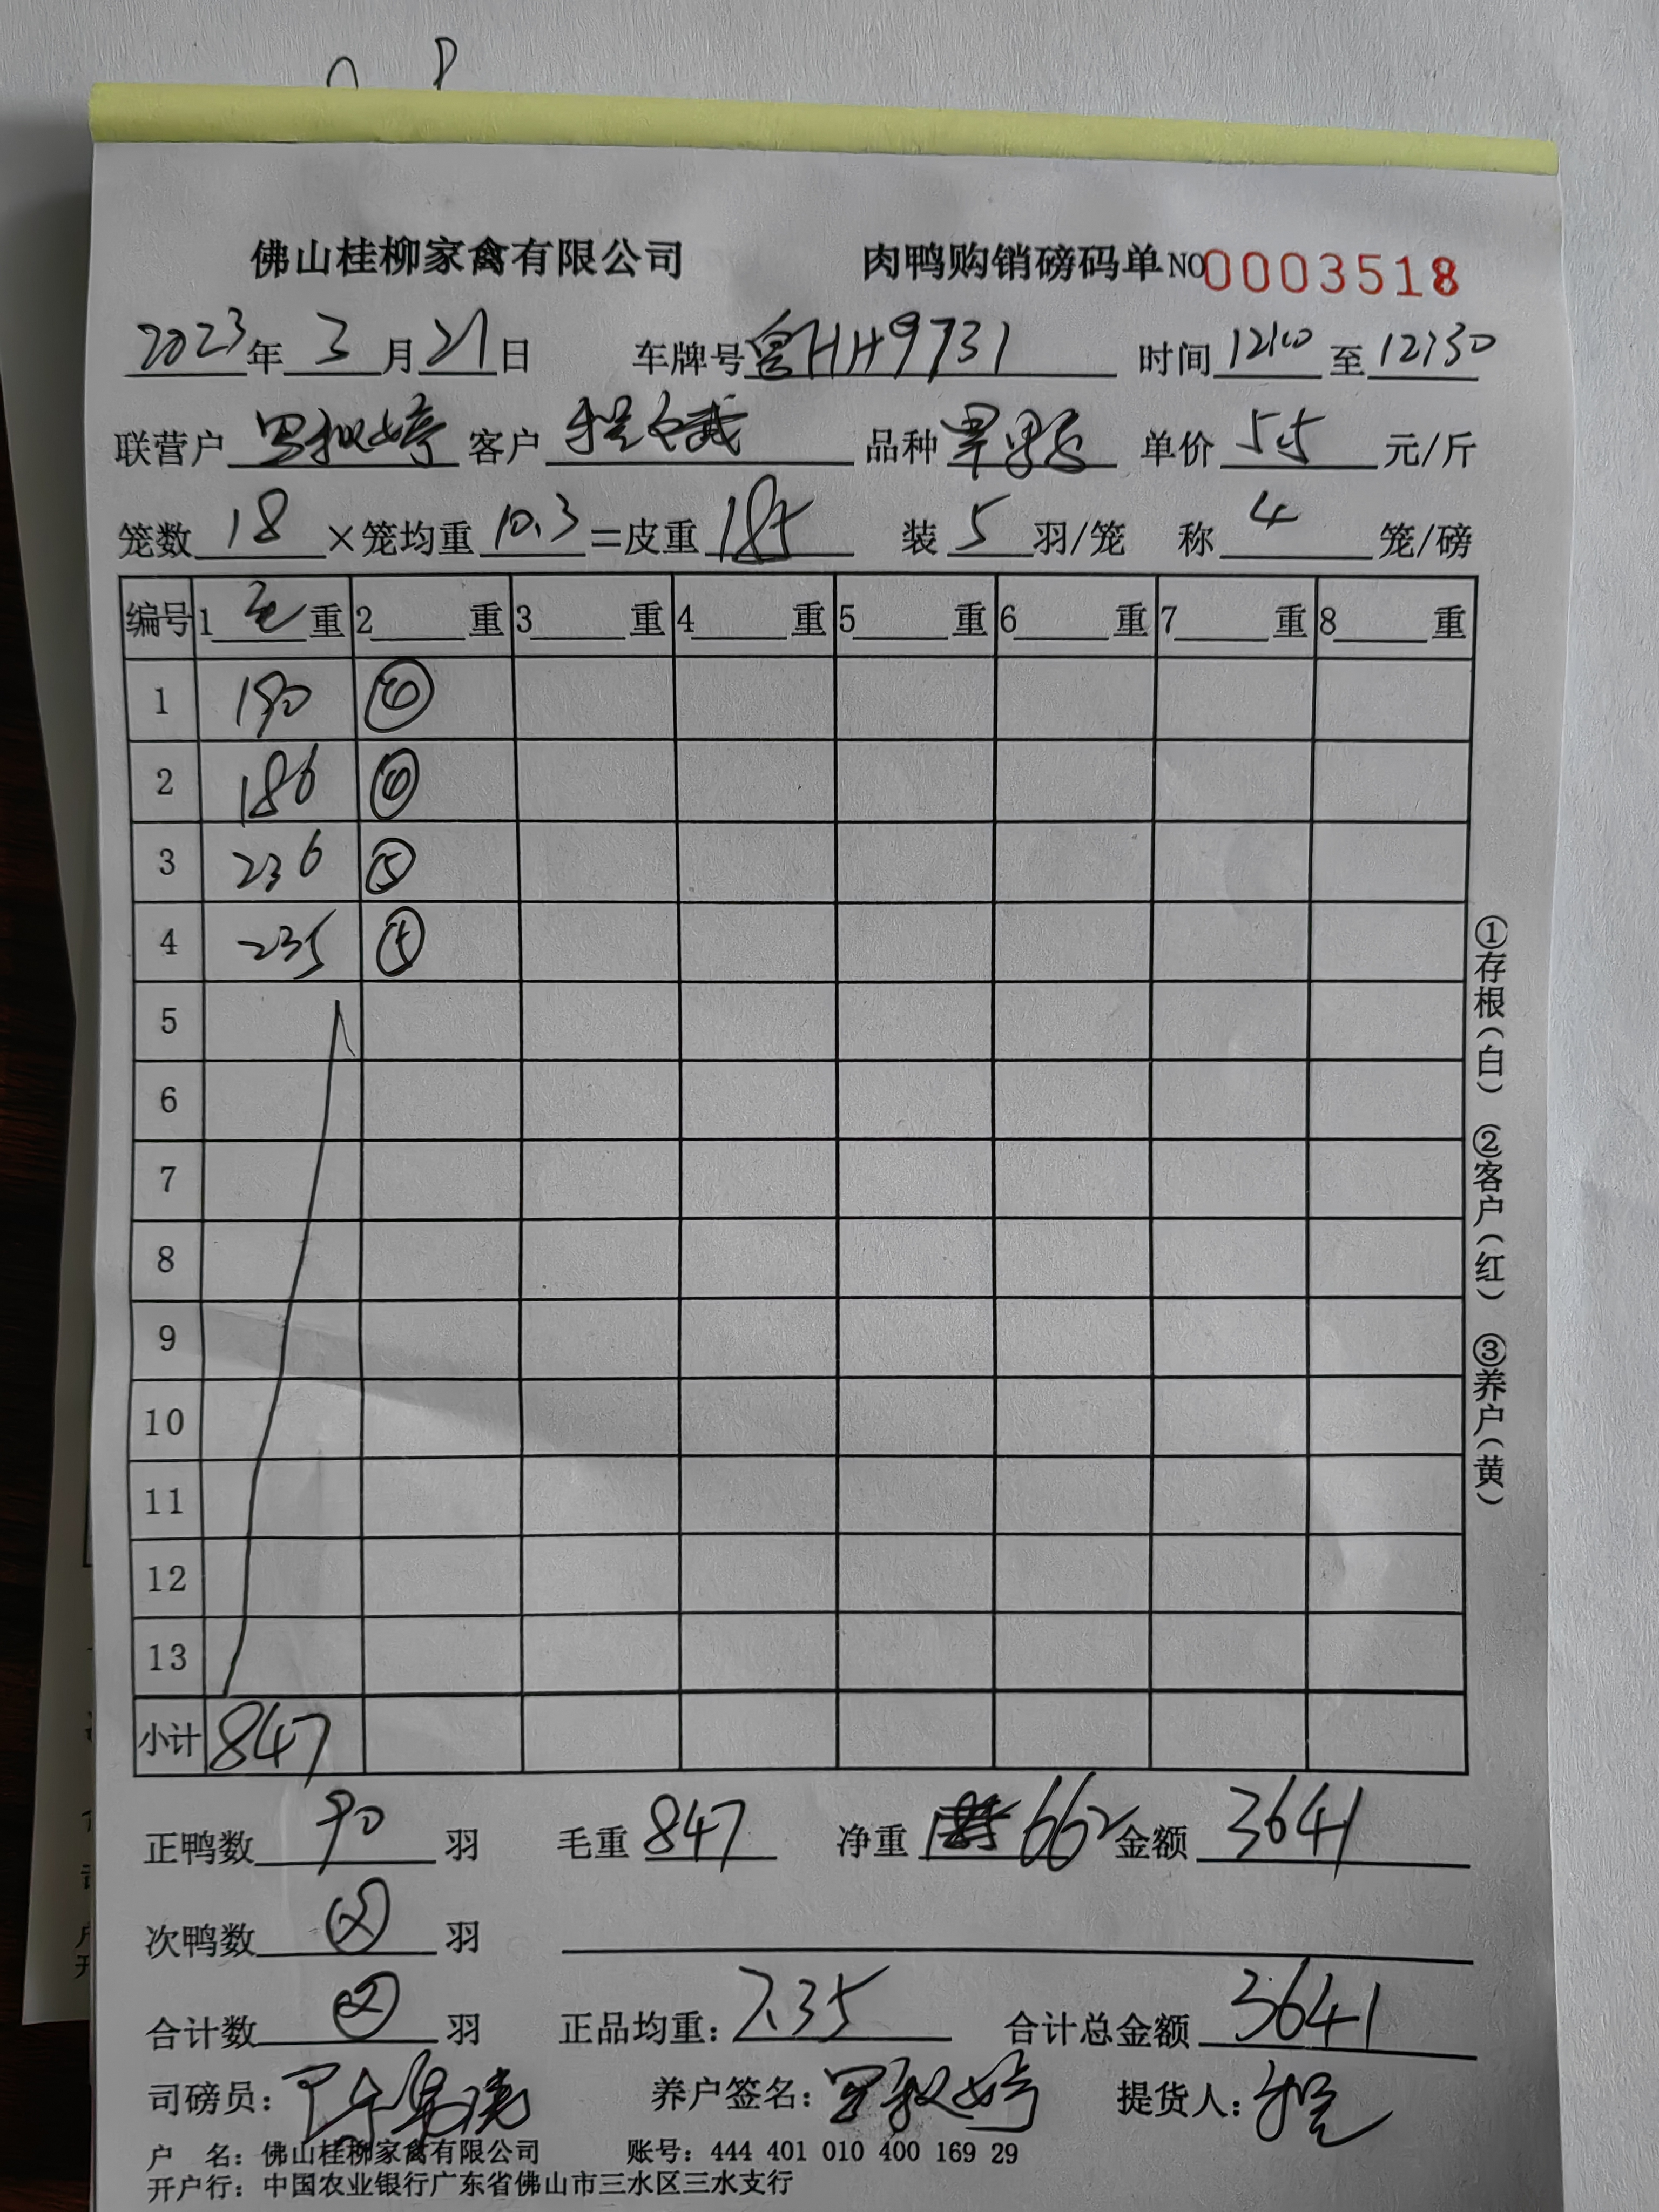 佛山桂柳家禽有限公司 肉鸭购销磅码单NO0003518
2023年3月21日 车牌号粤HH9731 时间12:00至12:30
联营户 客户 品种 单价5.5元/斤
笼数18×笼均重10.3=皮重185 装5羽/笼 称4笼/磅
编号 1毛重 2重 3重 4重 5重 6重 7重 8重
1 190 ④
2 186 ④
3 236 ⑤
4 235 ⑤
5
6
7
8
9
10
11
12
13
小计 847
正鸭数90羽 毛重847 净重662 金额3641
次鸭数羽
合计数羽 正品均重:7.35 合计总金额3641
司磅员: 养户签名: 提货人:
户 名:佛山桂柳家禽有限公司 账号:444 401 010 400 169 29
开户行:中国农业银行广东省佛山市三水区三水支行
①存根(白) ②客户(红) ③养户(黄)